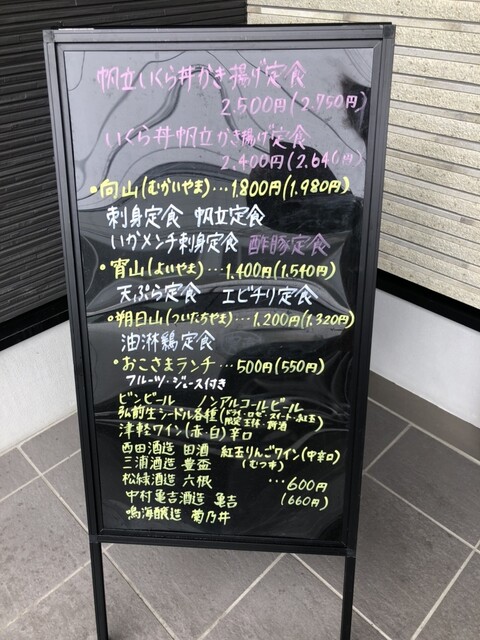 帆立いくら丼かき揚げ定食
2,500円(2,750円)
いくら丼帆立かき揚げ定食
2,400円(2,640円)
•向山(むかいやま)…1,800円(1,980円)
刺身定食 帆立定食
いかメンチ刺身定食 酢豚定食
•宵山(よいやま)…1,400円(1,540円)
天ぷら定食 エビチリ定食
•朔日山(ついたちやま)…1,200円(1,320円)
油淋鶏定食
•おこさまランチ…500円(550円)
フルーツ・ジュース付き
ビンビール ノンアルコールビール
弘前生シードル各種(ドライ・ロゼ・スイート・紅玉
限定 王林・新酒)
津軽ワイン(赤・白)辛口
西田酒造 田酒 紅玉りんごワイン(中辛口)
三浦酒造 豊盃 (むつ市)
松緑酒造 六根 …600円
中村亀吉酒造 亀吉 (660円)
鳴海醸造 菊乃井